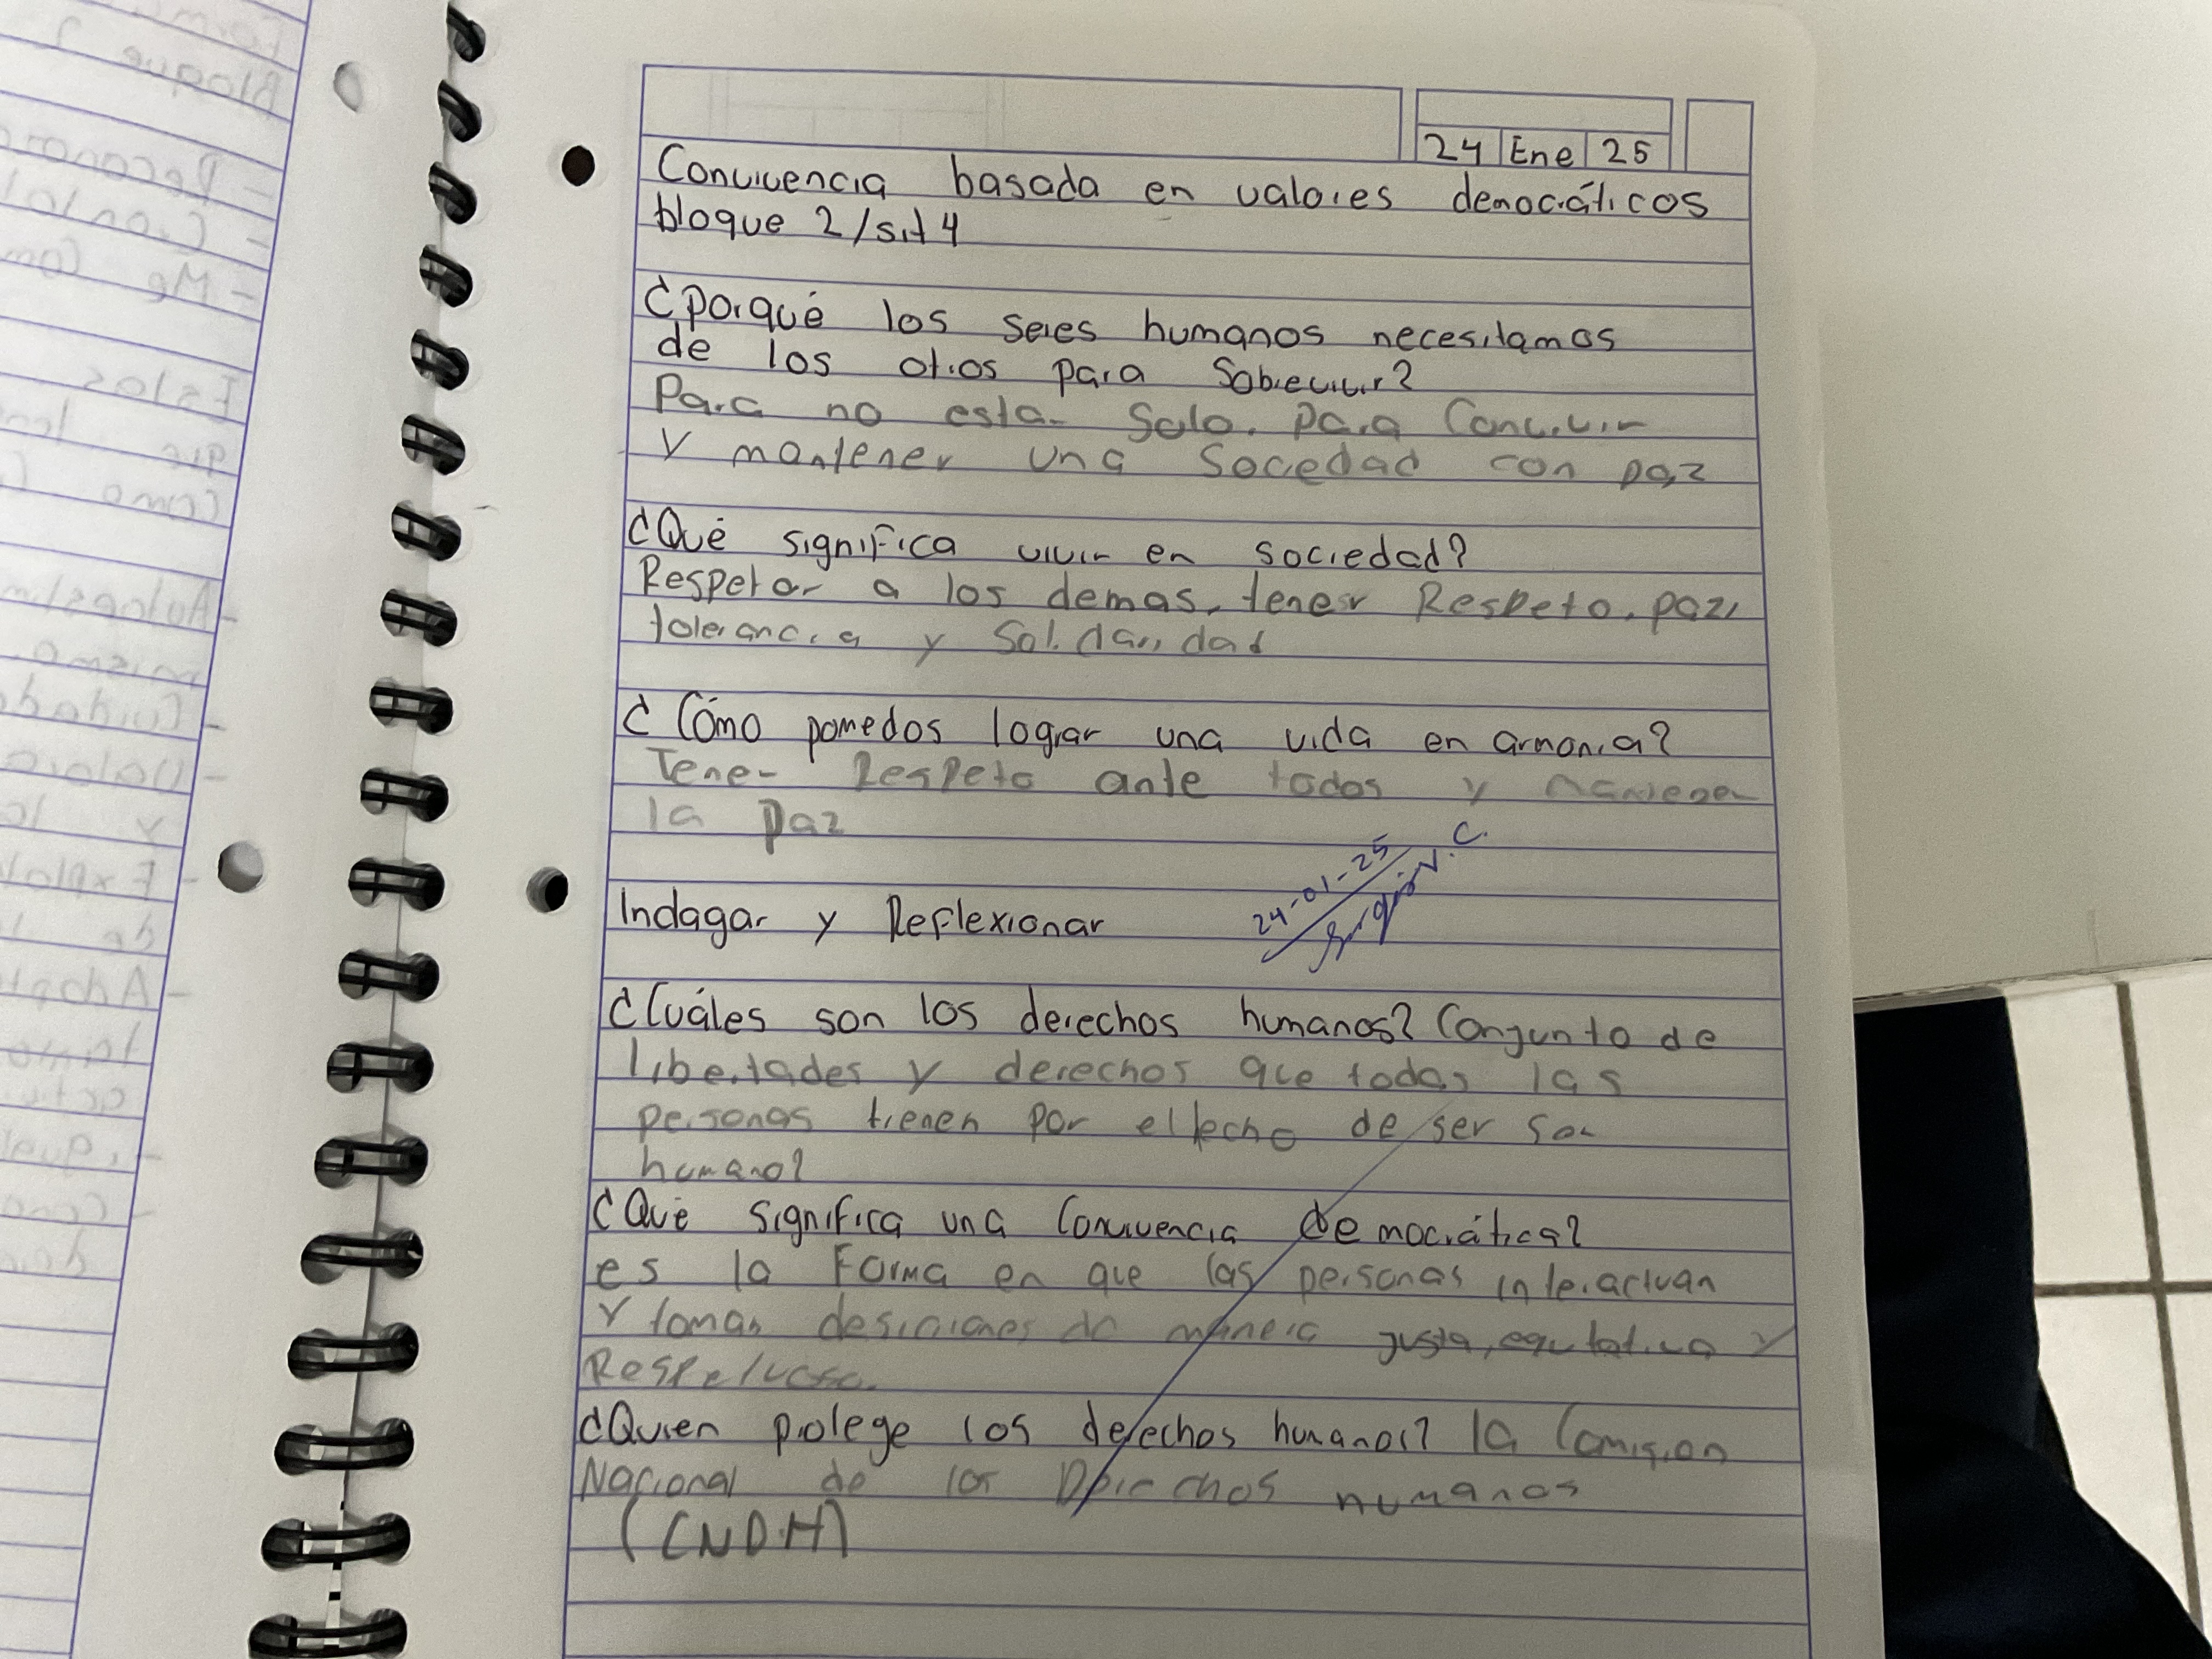 24 Ene 25
Convivencia basada en valores democráticos
bloque 2/sit 4
¿porqué los seres humanos necesitamos
de los otros para sobrevivir?
Para no estar solo, para Convivir
y mantener una sociedad con paz
¿Qué significa vivir en sociedad?
Respetar a los demas, tener Respeto, paz,
tolerancia y Solidaridad
¿Cómo pomedos lograr una vida en armonia?
Tener Respeto ante todos y mantener
la paz
24-01-25
Indagar y Reflexionar
¿Cuáles son los derechos humanos? Conjunto de
libertades y derechos que todas las
personas tienen por el hecho de ser
humano?
¿Qué significa una Convivencia democrática?
es la Forma en que las personas interactuan
y toman desiciones de manera justa, equitativa y
Respetuosa.
¿Quien protege los derechos humanos? la Comision
Nacional de los Derechos humanos
(CNDH)